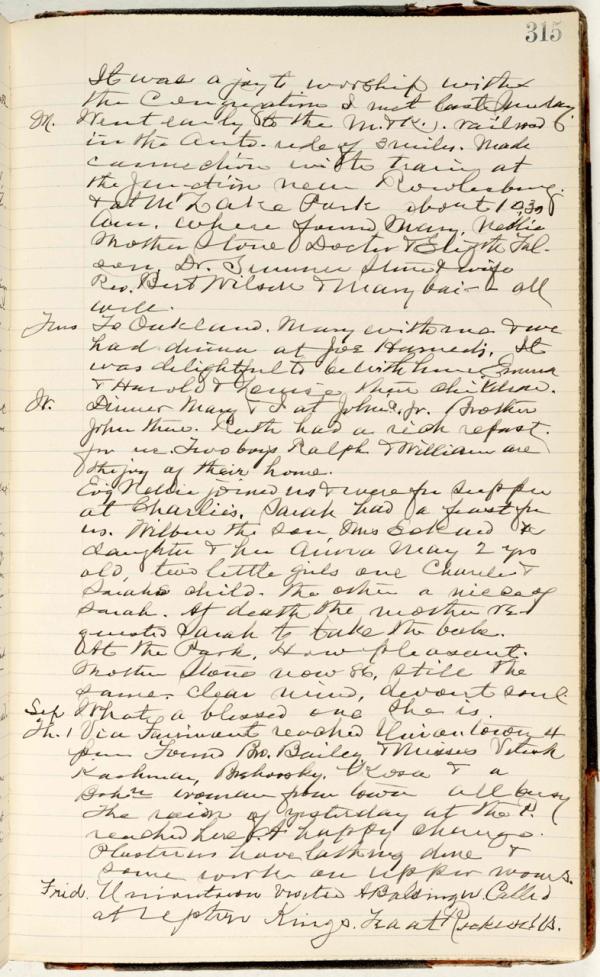 315
It was a joy to worship with
the Congregation I met last Sunday.
M. Went early to the M. & K. railroad
in the Auto. ride of 5 miles. Made
connection with train at
the Junction near Rowlesburg.
& at Mt Lake Park about 10,30
a.m. where found Mary, Nellie
Mother Stone Doctor &
Dr. Stone & wife
Rev. Bert Wilson & Mary all
well.
Tues To Oakland. Mary with me & we
had dinner at Joe Harned's. It
was delightful to be with him Emma
& Harold & Louise their children.
Dinner Mary & I at John Jr. Brother
John there. Ruth had a rich repast
for us. Two boys Ralph & William are
the joy of their home.
Evg Nellie joined us & were for supper
at Charlie's. Sarah had a feast for
us. Wilbur the son, Mrs
daughter & her May 2 yrs
old, two little girls one Charlie &
Sarah's child. the other a niece of
Sarah. At death the mother re-
quested Sarah to take the babe.
At the Park. How pleasant.
Mother Stone now 86, still the
same. clear mind, devout soul
What a blessed one she is.
Sep
Th. 1 Via Fairmont reached Uniontown 4
p.m. Found Bro. Bailey, & Misses
& Rosa & a
woman from town all busy
The rain of yesterday at the P.
reached here. A happy change.
Plasterers have lathing done &
some work on upper rooms.
Frid. Uniontown visited Called
at King's. Tea at